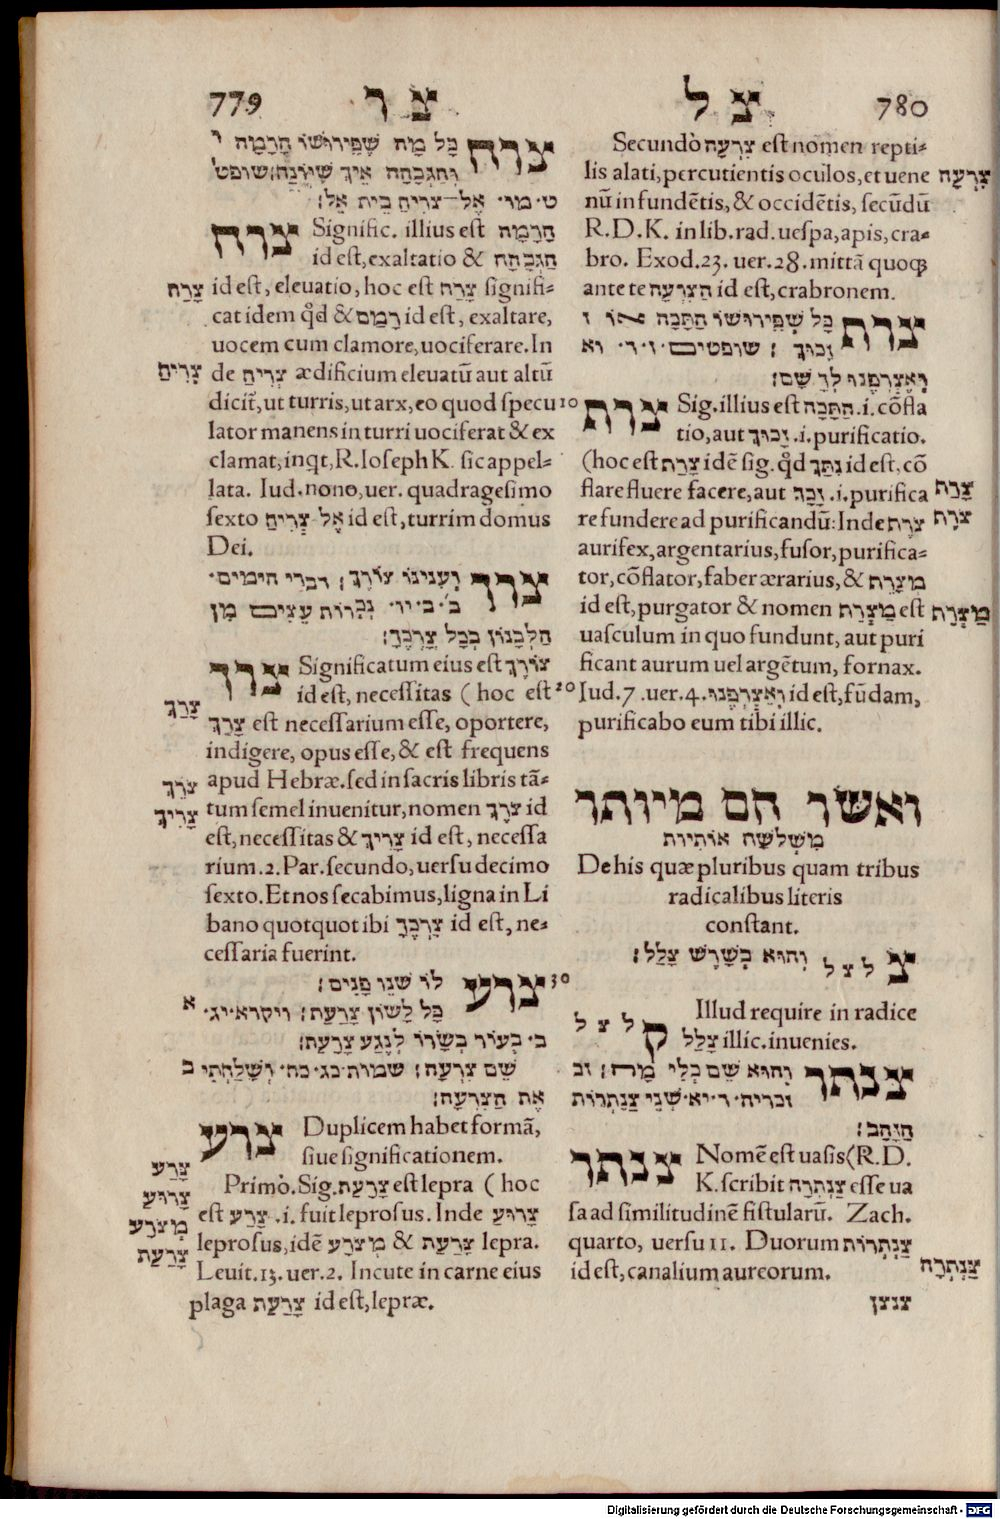 779 צ ר
צרח כל מה שפירושו הרמה
והגבהה איך שיונח׃ שופט׳
ט׳ מו׳ אל־צריח בית אל׃
צרח Signific. illius est הרמה
id est, exaltatio & הגבהה
צרח id est, eleuatio, hoc est צרח signifi-
cat idem qd̃ & רמם id est, exaltare,
uocem cum clamore, uociferare. In
צריח de צריח ædificium eleuatũ aut altũ
dicit̃, ut turris, ut arx, eo quod specu
lator manens in turri uociferat & ex
clamat, inqt, R. Ioseph K. sic appel-
lata. Iud. nono, uer. quadragesimo
sexto אל צריח id est, turrim domus
Dei.
צרך וענינו צורך׃ דברי הימים׳
ב׳ ב׳ יו׳ נכרות עצים מן
הלבנון ככל צרכך׃
צרך Significatum eius est צורך
id est, necessitas (hoc est
צרך צרך est necessarium esse, oportere,
indigere, opus esse, & est frequens
apud Hebræ. sed in sacris libris tã-
צרך tum semel inuenitur, nomen צרך id
צריך est, necessitas & צריך id est, necessa
rium. 2. Par. secundo, uersu decimo
sexto. Et nos secabimus, ligna in Li
bano quotquot ibi צרכך id est, ne-
cessaria fuerint.
צרע לו שני פנים׃
א כל לשון צרעת׃ ויקרא׳ יג׳
ב׳ בעור בשרו לנגע צרעת׃
ב שם צרעה׃ שמות׳ כג׳ כח׳ ושלחתי
את הצרעה׃
צרע Duplicem habet formã,
siue significationem.
צרע Primò. Sig. צרעת est lepra (hoc
צרוע est צרע .i. fuit leprosus. Inde צרוע
מצרע leprosus, idẽ מצרע & צרעת lepra.
צרעת Leuit. 13. uer. 2. Incute in carne eius
plaga צרעת id est, lepræ.
צ ל 780
Secundò צרעה est nomen repti-
lis alati, percutientis oculos, et uene צרעה
nũ infundẽtis, & occidẽtis, secũdũ
R. D. K. in lib. rad. uespa, apis, cra-
bro. Exod. 23. uer. 28. mittã quoqꝫ
ante te הצרעה id est, crabronem.
צרף כל שפירושו התכה או
זכוך׃ שופטים׳ ז׳ ד׳ וא
ואצרפנו לך שם׃
10 צרף Sig. illius est התכה .i. cõfla
tio, aut זכוך .i. purificatio.
(hoc est צרף idẽ sig. qd̃ נתך id est, cõ
flare fluere facere, aut זכך .i. purifica צרף
re fundere ad purificandũ: Inde צרף צרף
aurifex, argentarius, fusor, purifica-
tor, cõflator, faber ærarius, & מצרף
id est, purgator & nomen מצרף est מצרף
uasculum in quo fundunt, aut puri
ficant aurum uel argẽtum, fornax.
20 Iud. 7. uer. 4. ואצרפנו id est, fũdam,
purificabo eum tibi illic.
ואשר הם מיותר
משלשה אותיות
De his quæ pluribus quam tribus
radicalibus literis
constant.
צ ל צ ל והוא בשרש צלל׃
Illud require in radice
ק ל צ ל צלל illic. inuenies.
30 צנתר והוא שם כלי מה׃ זכ
וכריה׳ ד׳ יא׳ שני צנתרות
הזהב׃
צנתר Nomẽ est uasis (R. D.
K. scribit צנתרה esse ua
sa ad similitudinẽ fistularũ. Zach.
quarto, uersu 11. Duorum צנתרות
id est, canalium aureorum. צנתרה
צנצן
Digitalisierung gefördert durch die Deutsche Forschungsgemeinschaft - DFG